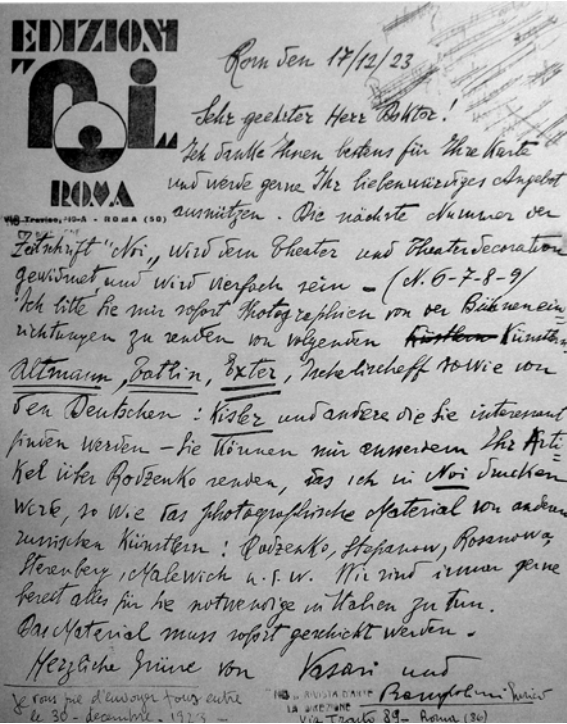 EDIZIONI
"Noi"
ROMA
Rom den 17/12/23
Sehr geehrter Herr Doktor!
Ich danke Ihnen bestens für Ihre Karte
und werde gerne Ihr liebenwürdiges Angebot
ausnützen. Die nächste Nummer der
Zeitschrift "Noi" wird dem Theater und Theaterdecoration
gewidmet und wird vierfach sein - (N. 6-7-8-9/
Ich bitte Sie mir sofort Photographien von der Bühnenein-
richtungen zu senden von volgenden Künstlern
Altmann, Tatlin, Exter, sowie von
den Deutschen: Kisler und andere die Sie interessant
finden werden - Sie können mir ausserdem Ihr Arti-
kel über Rodzenko senden, das ich in Noi drucken
werde, so wie das photographische Material von anderen
russischen Künstlern: Rodzenko, Stepanow, Rosanowa,
Sterenberg, Malewich u.s.w. Wir sind immer gerne
bereit alles für Sie notwendige in Italien zu tun.
Das Material muss sofort geschickt werden.
Herzliche Grüsse von Vasari und
Je vous prie d'envoyer tous entre
le 30 - decembre - 1923 -
RIVISTA D'ARTE
LA DIREZIONE
89 - Roma (36)